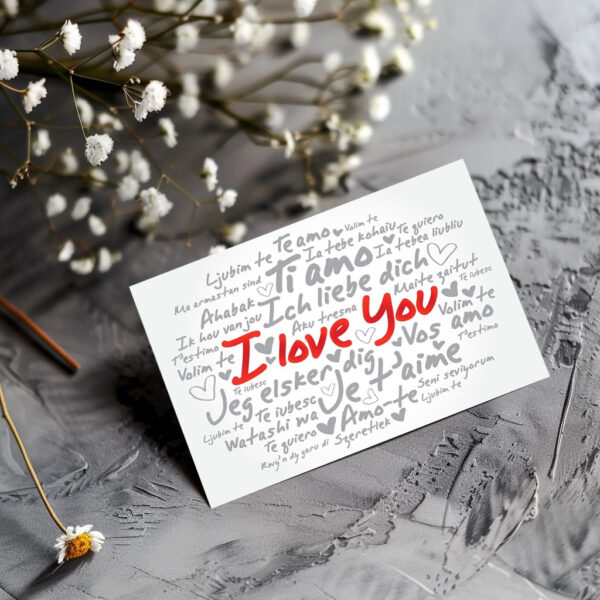 Te amo Volim te
Ljubim te Ia tebe kohaiu Te quiero
Ti amo Ia tebea liubliu
Ma armastan sind Ich liebe dich
Ahabak Maite zaitut Te iubesc
Ik hou van jou Aku tresna
T'estimo I love You Volim te
Volim te Vos amo
Te iubesc T'estimo
Jeg elsker dig Je t'aime
Ljubim te Te iubesc Seni seviyorum
Watashi wa Amo-te Ljubim te
Te quiero Szeretlek
Rwy'n dy garu di